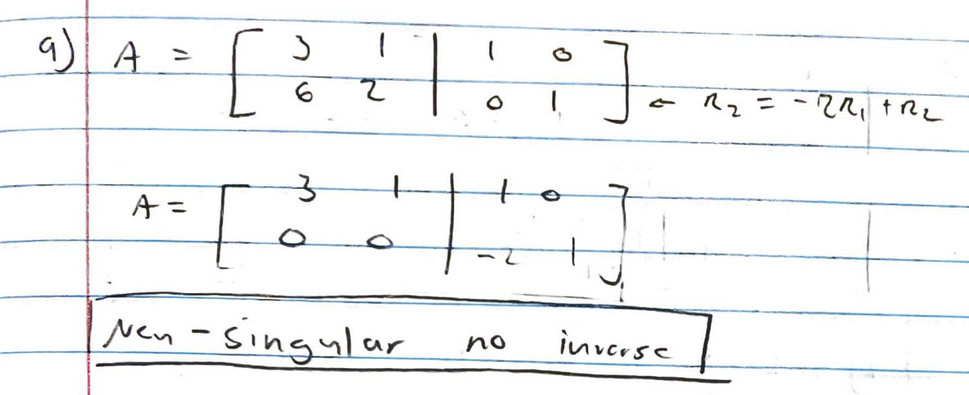 a) A = [ 3 1 | 1 0 ]
[ 6 2 | 0 1 ] ← R2 = -2R1 + R2
A = [ 3 1 | 1 0 ]
[ 0 0 | -2 1 ]
Non-singular no inverse